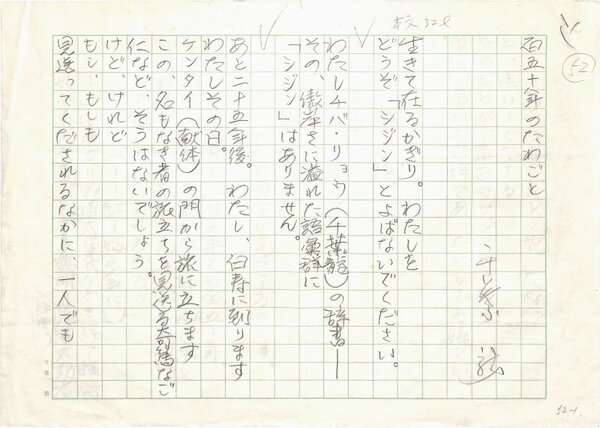 本文32ℓ
52
百五十年のたわごと
千葉 龍
生きて在るかぎり。わたしを
どうぞ「シジン」とよばないでください。
わたしチバ・リョウ(千葉龍)の辞書——
その、傲岸さに溢れた語彙群に
「シジン」はありません。
あと二十五年後。わたし、白寿に到ります
わたしその日。
ケンタイ(献体)の門から旅に立ちます
この、名もなき者の旅立ちを見送る奇篤なご
仁など、そうはないでしょう。
けれど、けれど
もし、もしも
見送ってくださるなかに、一人でも
52-1